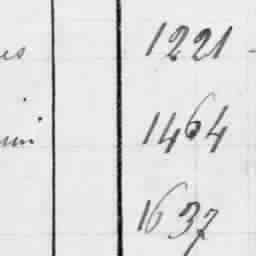 es 1221 -
1464
1637